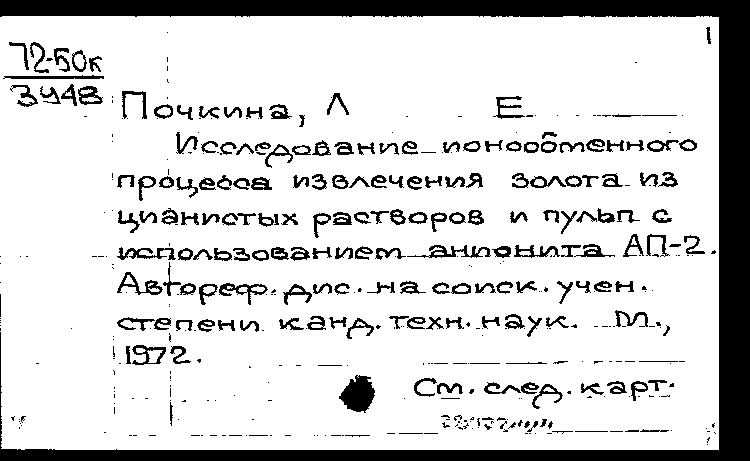 1
72-50к
3948
Почкина, Л Е
Исследование ионообменного
процесса извлечения золота из
цианистых растворов и пульп с
использованием анионита АП-2.
Автореф. дис. на соиск. учен.
степени канд. техн. наук. М.,
1972.
См. след. карт.